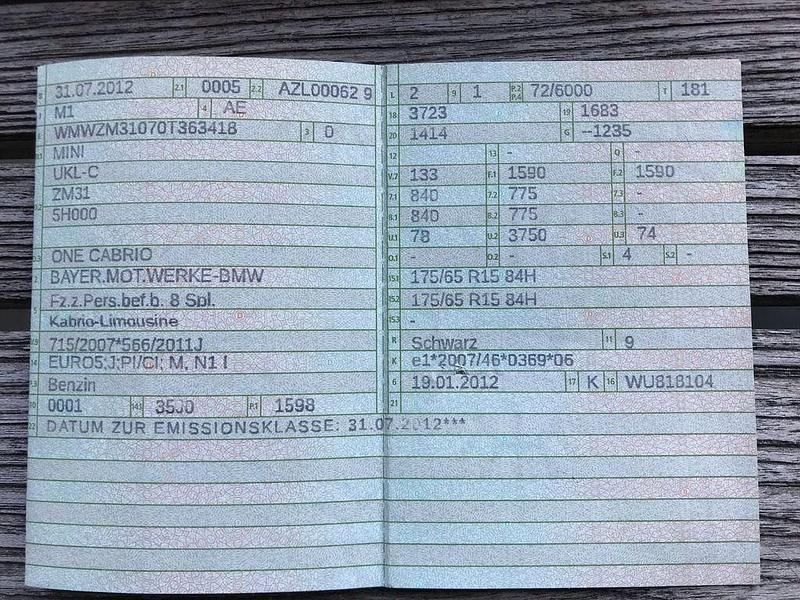 31.07.2012 2.1 0005 2.2 AZL00062 9
M1 4 AE
WMWZM31070T363418 3 0
MINI
UKL-C
ZM31
5H000
ONE CABRIO
BAYER.MOT.WERKE-BMW
Fz.z.Pers.bef.b. 8 Spl.
Kabrio-Limousine
715/2007*566/2011J
EURO5;J;PI/CI; M, N1 I
Benzin
0001 3500 P.1 1598
DATUM ZUR EMISSIONSKLASSE: 31.07.2012***
L 2 9 1 P.2 P.4 72/6000 T 181
18 3723 19 1683
20 1414 G --1235
12 13 - Q -
V.7 133 F.1 1590 F.2 1590
7.1 840 7.2 775 7.3 -
8.1 840 8.2 775 8.3 -
U.1 78 U.2 3750 U.3 74
O.1 - O.2 - S.1 4 S.2 -
15.1 175/65 R15 84H
15.2 175/65 R15 84H
15.3 -
R Schwarz 11 9
K e1*2007/46*0369*06
6 19.01.2012 17 K 16 WU818104
21